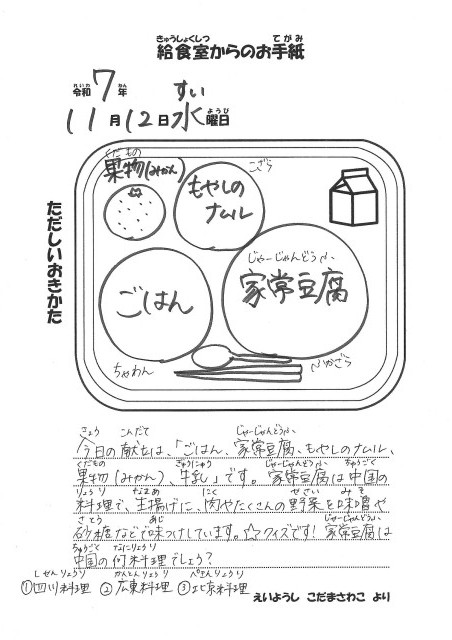 きゅうしょくしつ　てがみ
給食室からのお手紙
れいわ　ねん　すい
令和7年
11月12日水曜日
ようび
ただしいおきかた
くだもの
果物(みかん)
こざら
もやしの
ナムル
じゃーじゃんどうふ
家常豆腐
ごはん
ちゃわん
ふかざら
きょう　こんだて　じゃーじゃんどうふ
今日の献立は、「ごはん、家常豆腐、もやしのナムル、
くだもの　ぎゅうにゅう　じゃーじゃんどうふ　ちゅうごく
果物(みかん)、牛乳」です。家常豆腐は中国の
りょうり　なまあ　にく　やさい　みそ
料理で、生揚げに、肉やたくさんの野菜を味噌や
さとう　あじ　じゃーじゃんどうふ
砂糖などで味つけしています。☆クイズです!家常豆腐は
ちゅうごく　なにりょうり
中国の何料理でしょう?
しせんりょうり　かんとんりょうり　ぺきんりょうり
①四川料理 ②広東料理 ③北京料理
えいようし　こだまさわこ　より